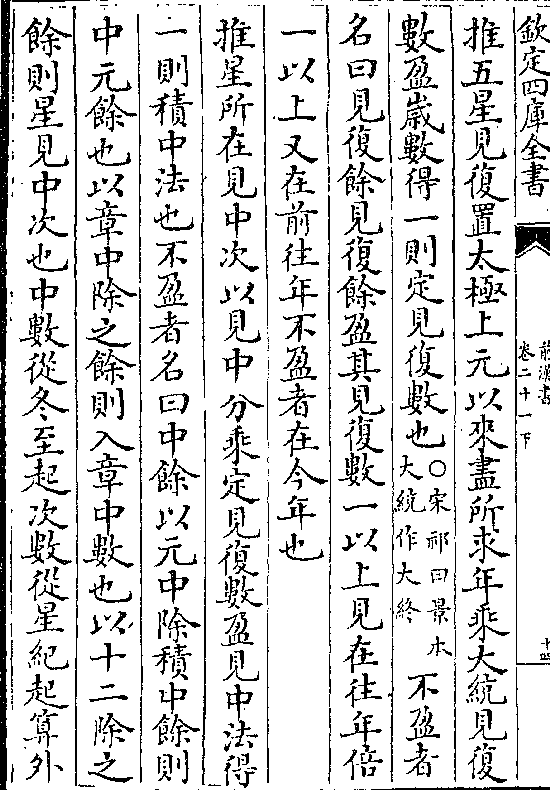 欽定四庫全書
前漢書
卷二十一下
十四
推五星見復置太極上元以來盡所求年乘大統見復
數盈歲數得一則定見復數也
○宋祁曰景本
大統作大終
不盈者
名曰見復餘見復餘盈其見復數一以上見在往年倍
一以上又在前往年不盈者在今年也
推星所在見中次以見中分乘定見復數盈見中法得
一則積中法也不盈者名曰中餘以元中除積中餘則
中元餘也以章中除之餘則入章中數也以十二除之
餘則星見中次也中數從冬至起次數從星紀起算外